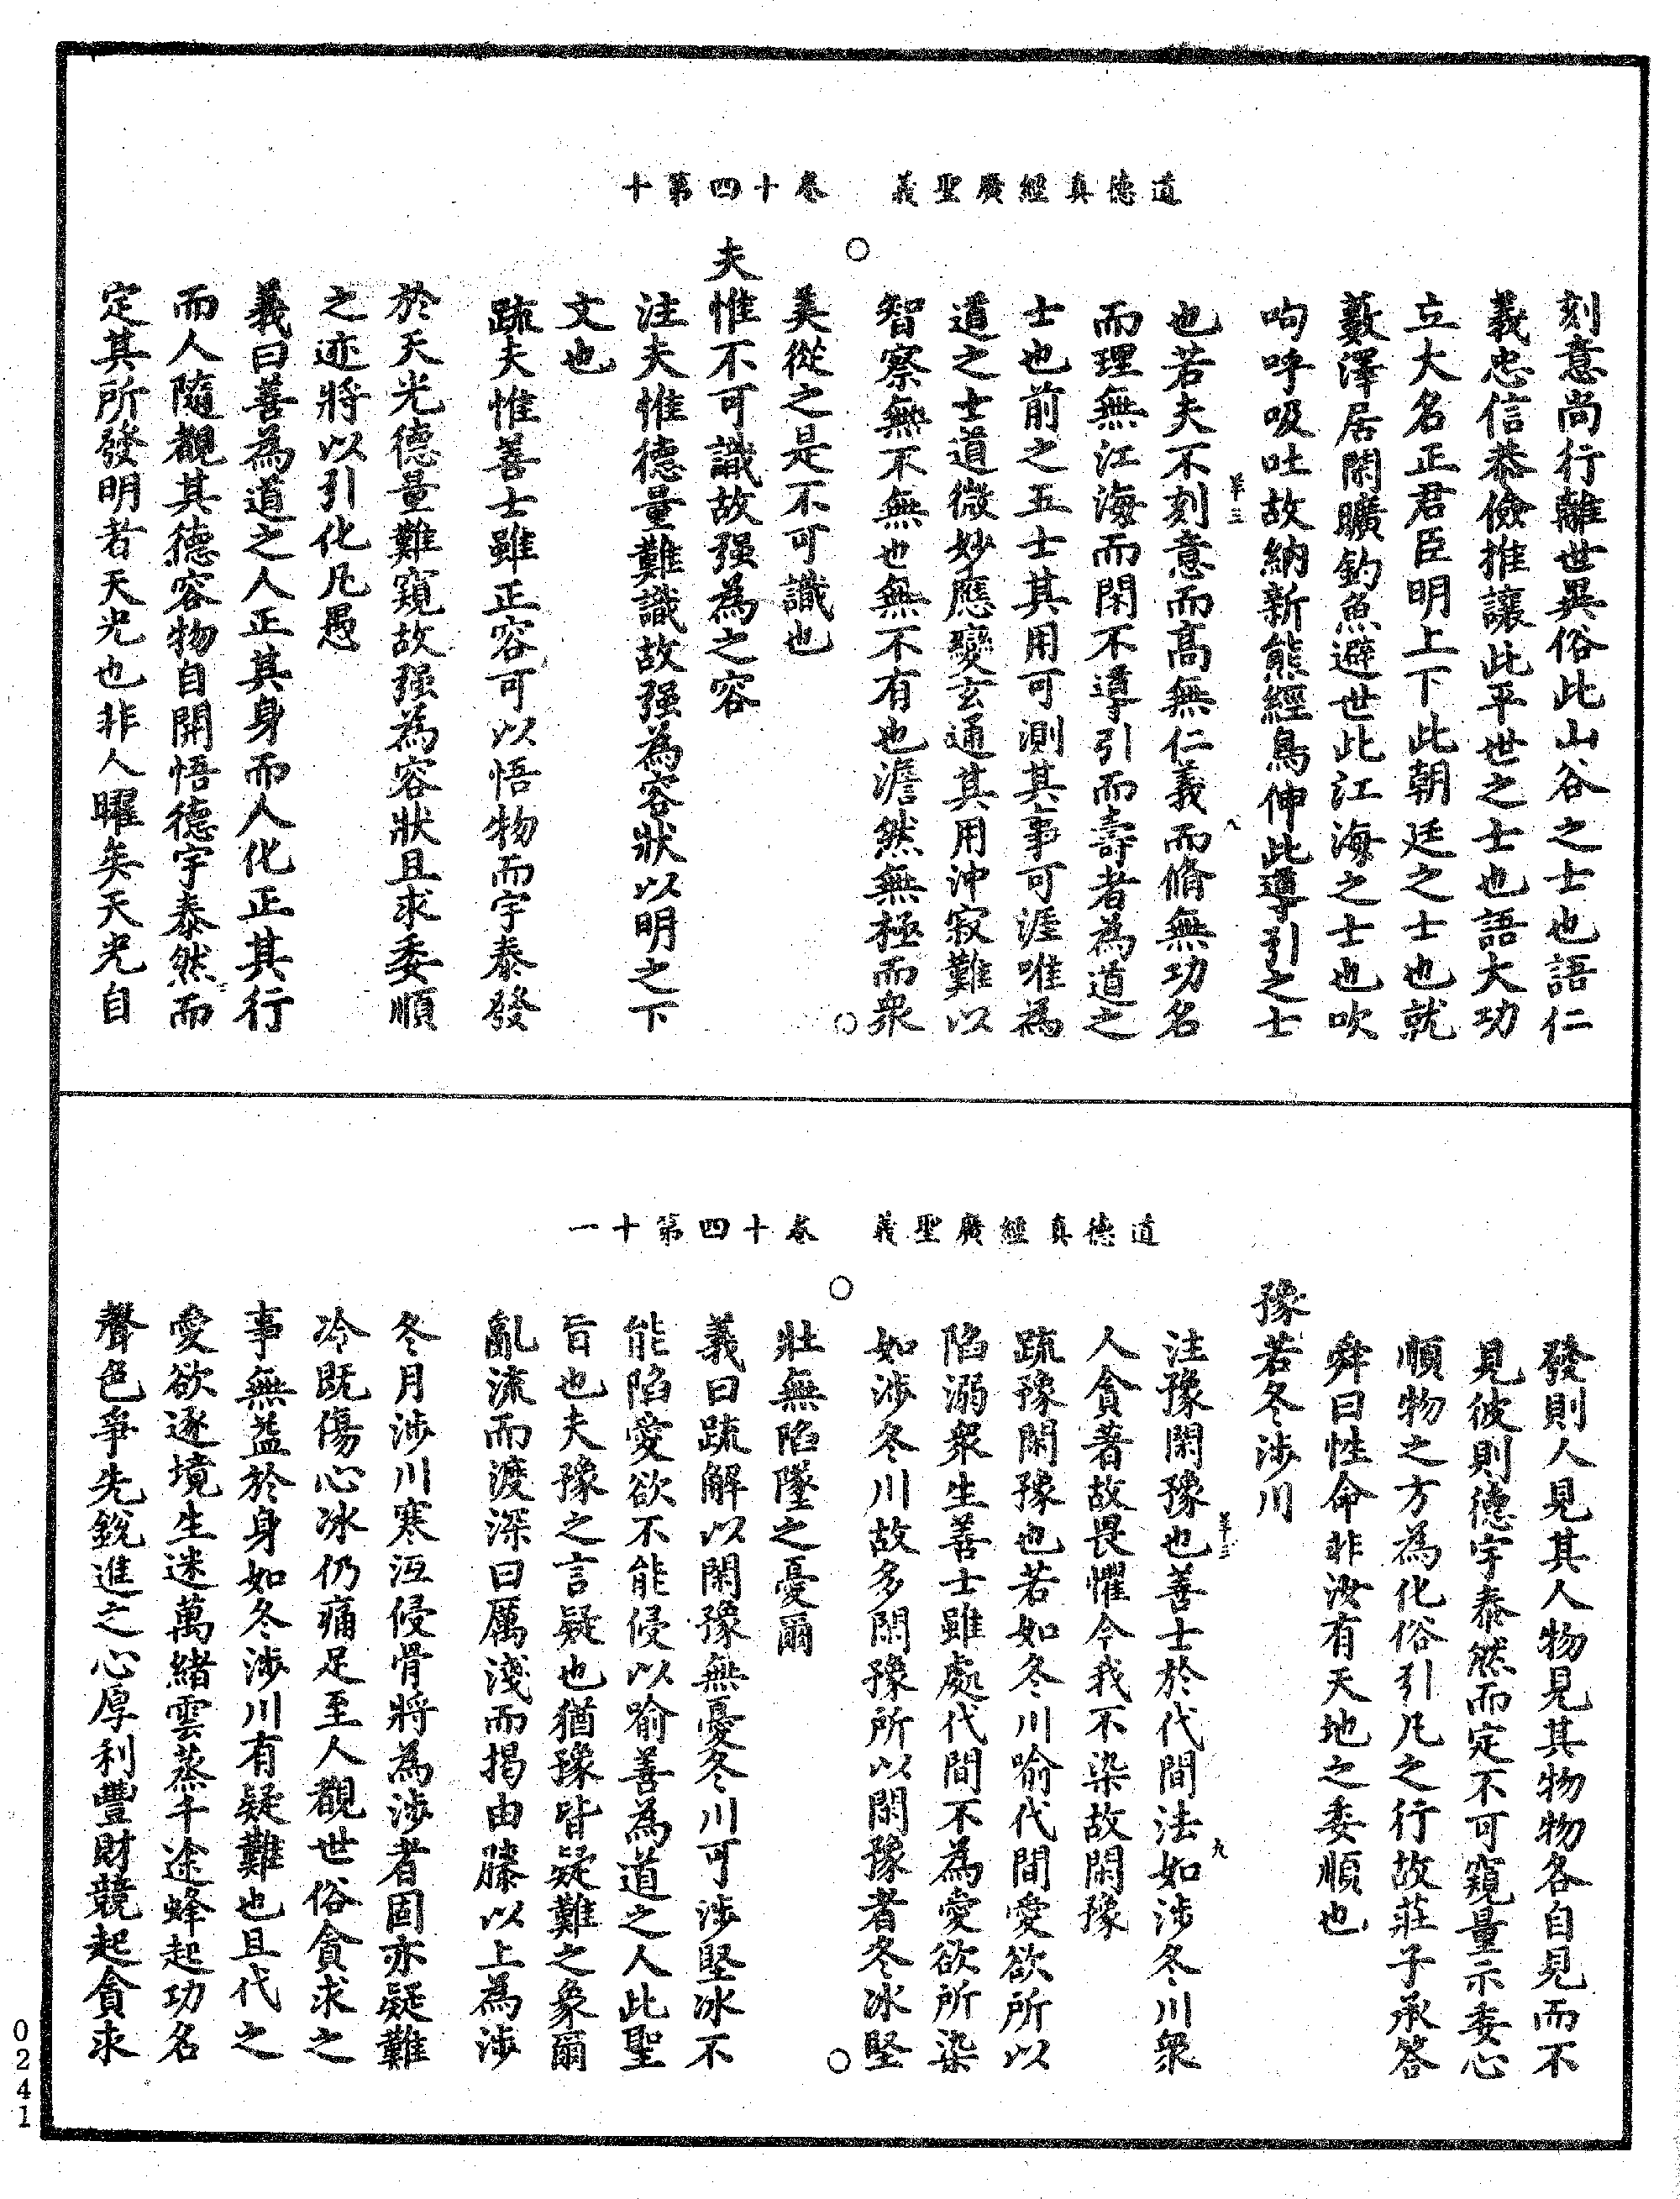 道德真經廣聖義　卷十四第十
刻意尚行離世異俗此山谷之士也語仁
義忠信恭儉推讓此平世之士也語大功
立大名正君臣明上下此朝廷之士也就
藪澤居閑曠釣魚避世此江海之士也吹
呴呼吸吐故納新熊經鳥伸此導引之士
羊三　八
也若夫不刻意而高無仁義而脩無功名
而理無江海而閑不導引而壽者為道之
士也前之五士其用可測其事可涯唯為
道之士道微妙應變玄通其用沖寂難以
智察無不無也無不有也澹然無極而衆
美從之是不可識也
夫惟不可識故强為之容
注夫惟德量難識故强為容狀以明之下
文也
疏夫惟善士雖正容可以悟物而宇泰發
於天光德量難窺故强為容狀且求委順
之迹將以引化凡愚
義曰善為道之人正其身而人化正其行
而人隨觀其德容物自開悟德宇泰然而
定其所發明者天光也非人曜矣天光自
道德真經廣聖義　卷十四第十一
發則人見其人物見其物物各自見而不
見彼則德宇泰然而定不可窺量示委心
順物之方為化俗引凡之行故莊子承答
舜曰性命非汝有天地之委順也
豫若冬涉川
羊三　九
注豫閑豫也善士於代間法如涉冬川衆
人貪著故畏懼今我不染故閑豫
疏豫閑豫也若如冬川喻代間愛欲所以
陷溺衆生善士雖處代間不為愛欲所染
如涉冬川故多閑豫所以閑豫者冬冰堅
壯無陷墜之憂爾
義曰疏解以閑豫無憂冬川可涉堅冰不
能陷愛欲不能侵以喻善為道之人此聖
旨也夫豫之言疑也猶豫皆疑難之象爾
亂流而渡深曰厲淺而揭由膝以上為涉
冬月涉川寒沍侵骨將為涉者固亦疑難
冷既傷心冰仍痛足至人觀世俗貪求之
事無益於身如冬涉川有疑難也且代之
愛欲逐境生迷萬緒雲蒸千途蜂起功名
聲色爭先銳進之心厚利豐財競起貪求
0241